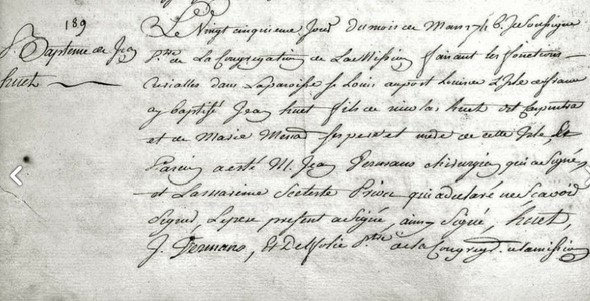 189
Baptême de Jean
huet
De
Le Vingt cinquieme Jour du mois de Mars 174 Je Soussigné
Ptre de La Congregation de La Mission faisant les fonctions
Curialles dans La paroisse St Louis au port Louis de L'Isle de france
ay baptisé Jean huet fils de nicolas huet
et de Marie ses pere et mere de cette Isle, Le
Parein a esté M. Jean Germano chirurgien qui a Signé
et La mareine qui a declaré ne Scavoir
Signer Le pere present a Signé, ainsy Signé, huet,
J. Germano, Et Ptre de la Congreg. de la mission